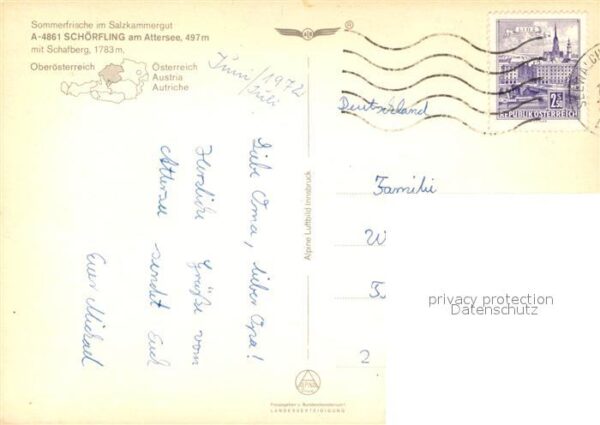 Sommerfrische im Salzkammergut
A-4861 SCHÖRFLING am Attersee, 497 m
mit Schafberg, 1783 m.
Oberösterreich
Österreich
Austria
Autriche
Juni/1972
Juli
Liebe Oma, lieber Opa!
Herzliche Grüße vom
Attersee sendet Euch
Euer Michael
Alpine Luftbild Innsbruck
®
LINZ
2.50
REPUBLIK ÖSTERREICH
Deutschland
Familie
W
privacy protection
Datenschutz
ALPINE
Freigegeben v. Bundesministerium f.
LANDESVERTEIDIGUNG